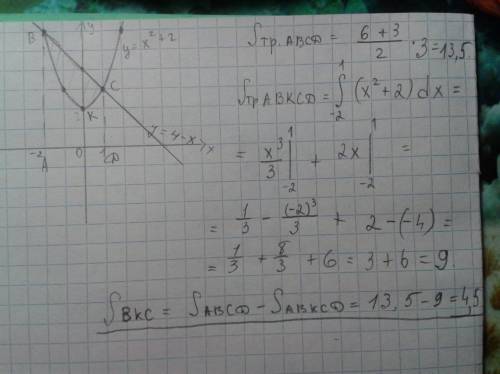 y
B
y = x² + 2
C
K
y = 4 - x
x
-2
0
1
A
D
Sтр. ABCD = (6 + 3)/2 · 3 = 13,5.
Sтр ABKCD = ∫₋₂¹ (x² + 2) dx =
= x³/3 |₋₂¹ + 2x |₋₂¹ =
= 1/3 - (-2)³/3 + 2 - (-4) =
= 1/3 + 8/3 + 6 = 3 + 6 = 9.
SBKC = SABCD - SABKCD = 13,5 - 9 = 4,5